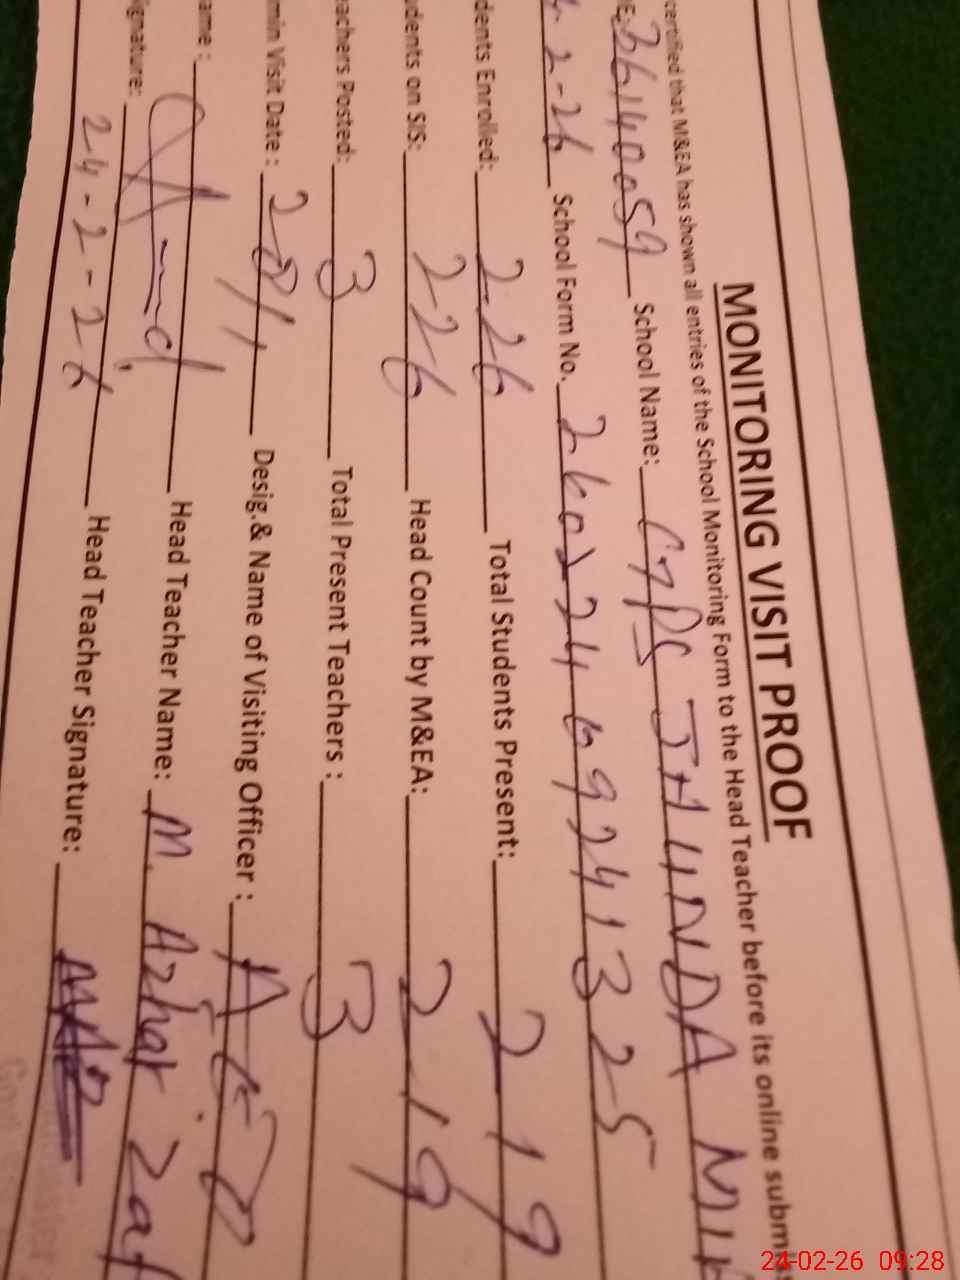 MONITORING VISIT PROOF
certified that M&EA has shown all entries of the School Monitoring Form to the Head Teacher before its online subm
36140059 School Name: GPS JHUNDA
2-26 School Form No. 26022469241325
dents Enrolled: 226 Total Students Present: 219
udents on SIS: 226 Head Count by M&EA: 219
achers Posted: 3 Total Present Teachers : 3
min Visit Date : Desig.& Name of Visiting Officer :
ame : Head Teacher Name: M. Azhar Zaf
ignature: Head Teacher Signature:
24-2-26
24-02-26 09:28